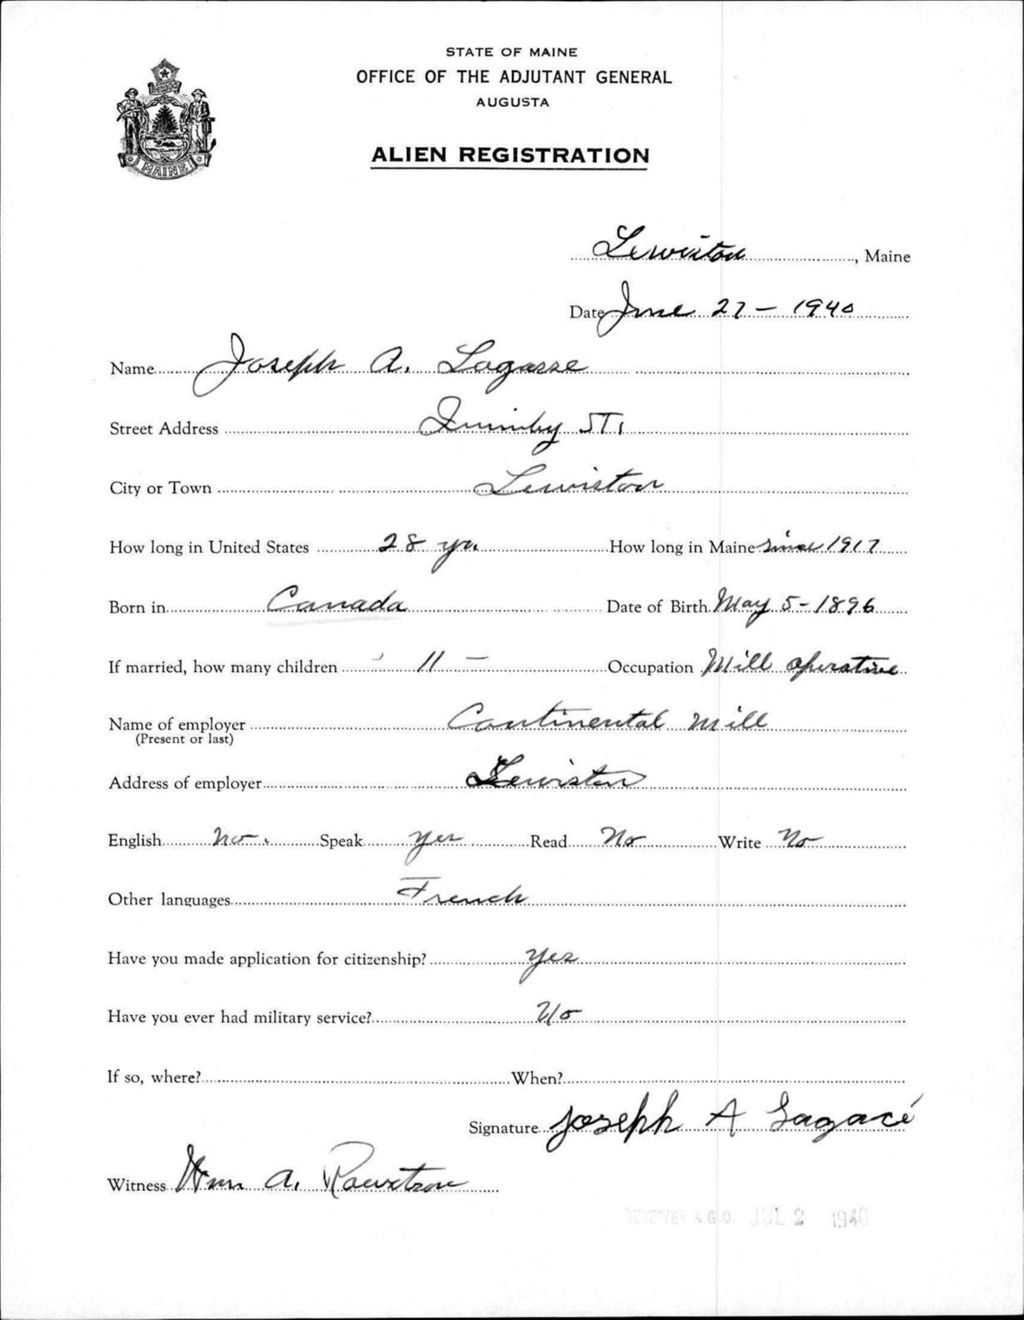 STATE OF MAINE
OFFICE OF THE ADJUTANT GENERAL
AUGUSTA
ALIEN REGISTRATION
MAINE
Lewiston, Maine
Date June 27 - 1940
Name Joseph A. Lagasse
Street Address Quimby ST.
City or Town Lewiston
How long in United States 28 yrs How long in Maine since 1917
Born in Canada Date of Birth May 5 - 1896
If married, how many children 11 - Occupation Mill operative
Name of employer Continental Mill
(Present or last)
Address of employer Lewiston
English No. Speak Yes Read No Write No
Other languages French
Have you made application for citizenship? Yes
Have you ever had military service? No
If so, where? When?
Signature Joseph A Lagacé
Witness Wm A.
A.G.O. JUL 2 1940